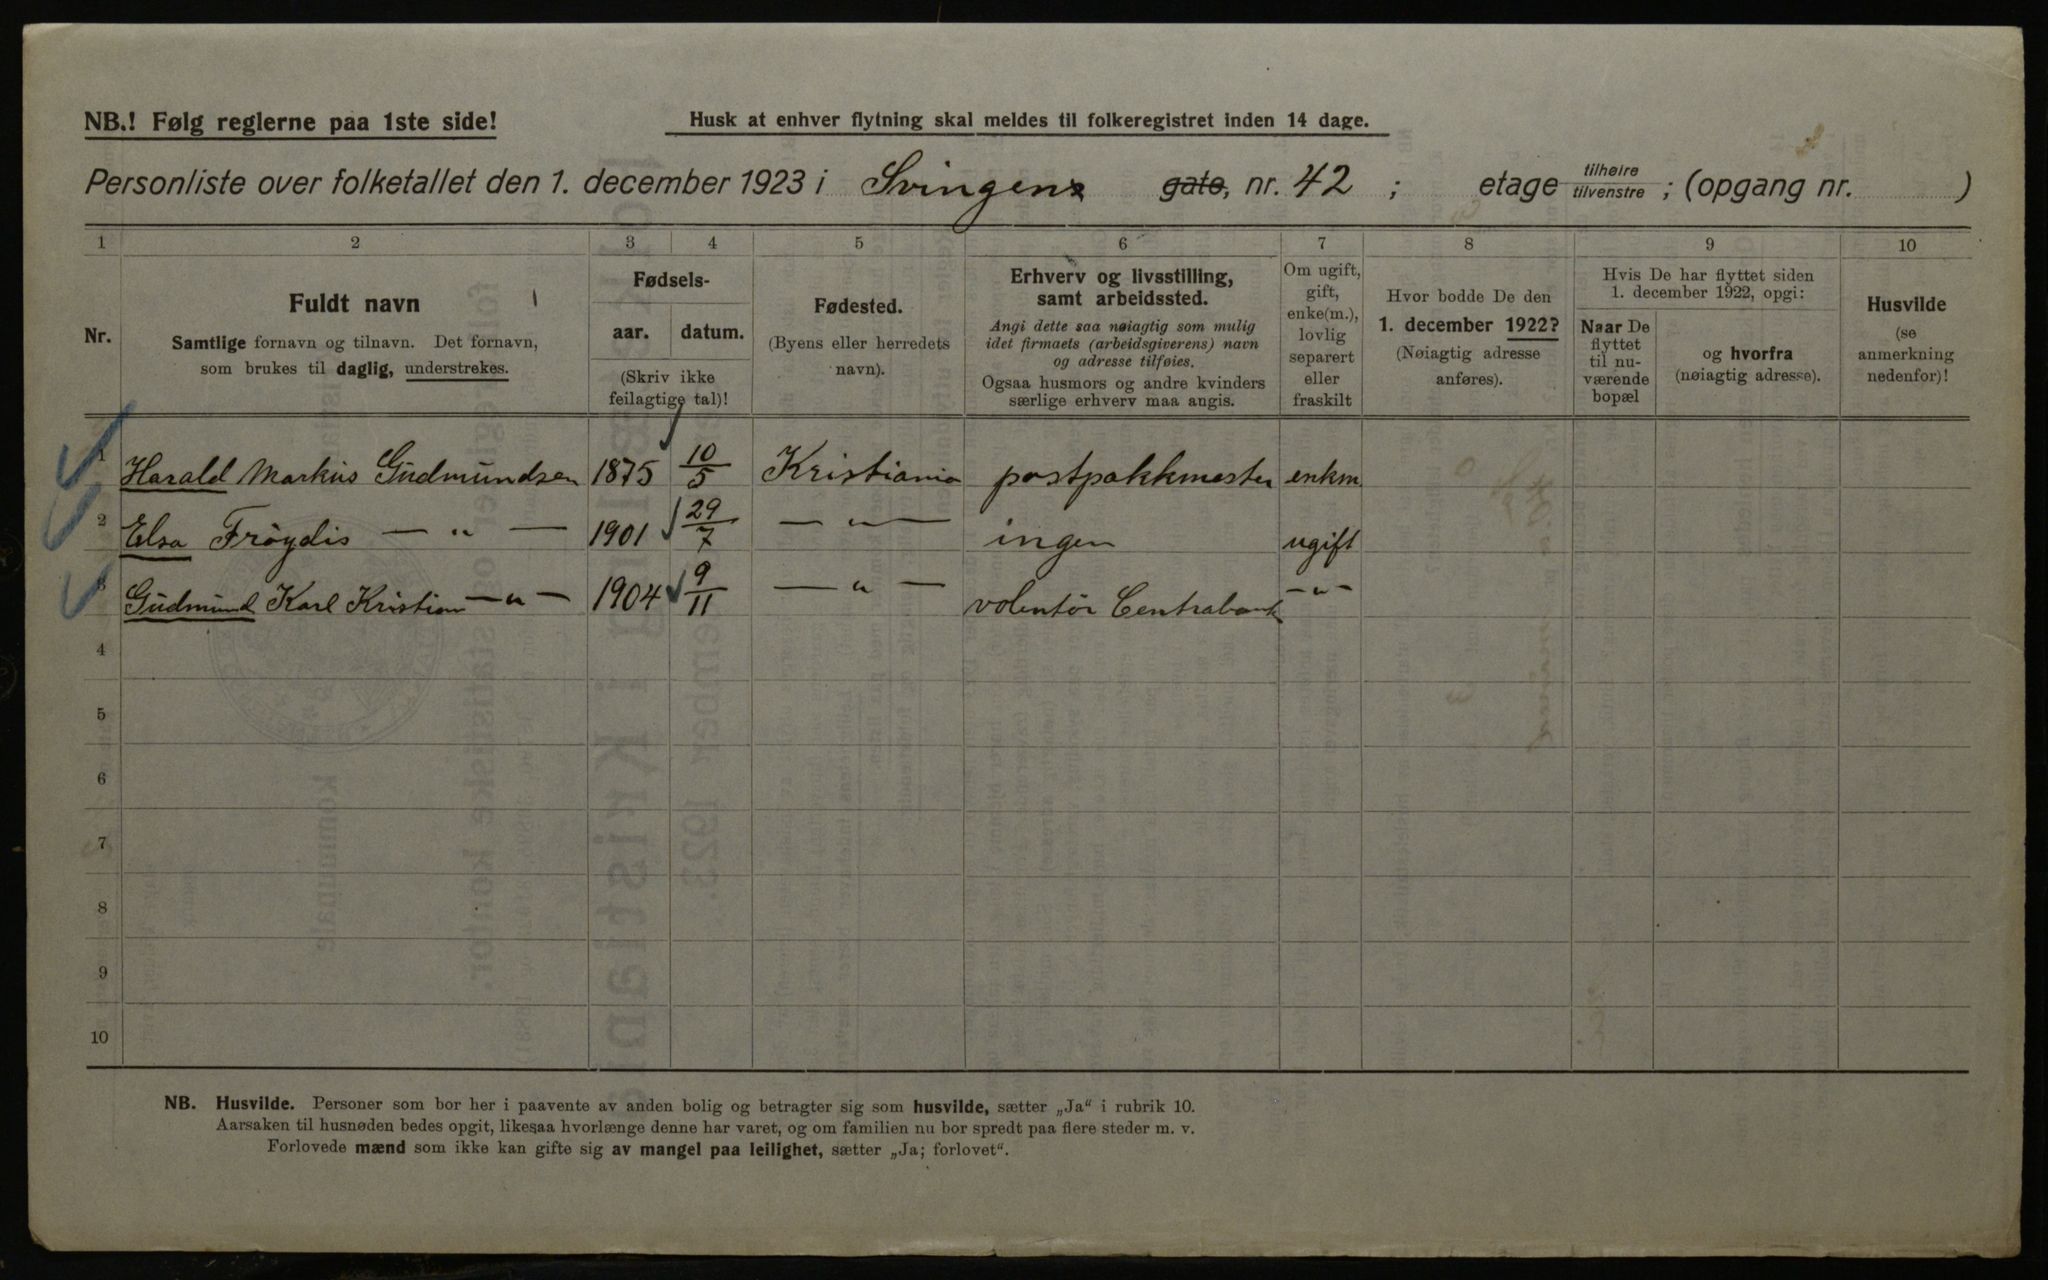 NB.! Følg reglerne paa 1ste side!
Husk at enhver flytning skal meldes til folkeregistret inden 14 dage.
Personliste over folketallet den 1. december 1923 i Svingen gate, nr. 42 ; etage tilhøire tilvenstre ; (opgang nr. )
1 2 3 4 5 6 7 8 9 10
Nr.
Fuldt navn
Samtlige fornavn og tilnavn. Det fornavn,
som brukes til daglig, understrekes.
Fødsels-
aar. datum.
(Skriv ikke
feilagtige tal)!
Fødested.
(Byens eller herredets
navn).
Erhverv og livsstilling,
samt arbeidssted.
Angi dette saa nøiagtig som mulig
idet firmaets (arbeidsgiverens) navn
og adresse tilføies.
Ogsaa husmors og andre kvinders
særlige erhverv maa angis.
Om ugift,
gift,
enke(m.),
lovlig
separert
eller
fraskilt
Hvor bodde De den
1. december 1922?
(Nøiagtig adresse
anføres).
Hvis De har flyttet siden
1. december 1922, opgi:
Naar De
flyttet
til nu-
værende
bopæl
og hvorfra
(nøiagtig adresse).
Husvilde
(se
anmerkning
nedenfor)!
1 Harald Markus Gudmundsen 1875 10/5 Kristiania postpakkmester enkm.
2 Elsa Frøydis — „ — 1901 29/7 — „ — ingen ugift
3 Gudmund Karl Kristian — „ — 1904 9/11 — „ — volentør Centrabank — „ —
4
5
6
7
8
9
10
NB. Husvilde. Personer som bor her i paavente av anden bolig og betragter sig som husvilde, sætter „Ja“ i rubrik 10.
Aarsaken til husnøden bedes opgit, likesaa hvorlænge denne har varet, og om familien nu bor spredt paa flere steder m. v.
Forlovede mænd som ikke kan gifte sig av mangel paa leilighet, sætter „Ja; forlovet“.